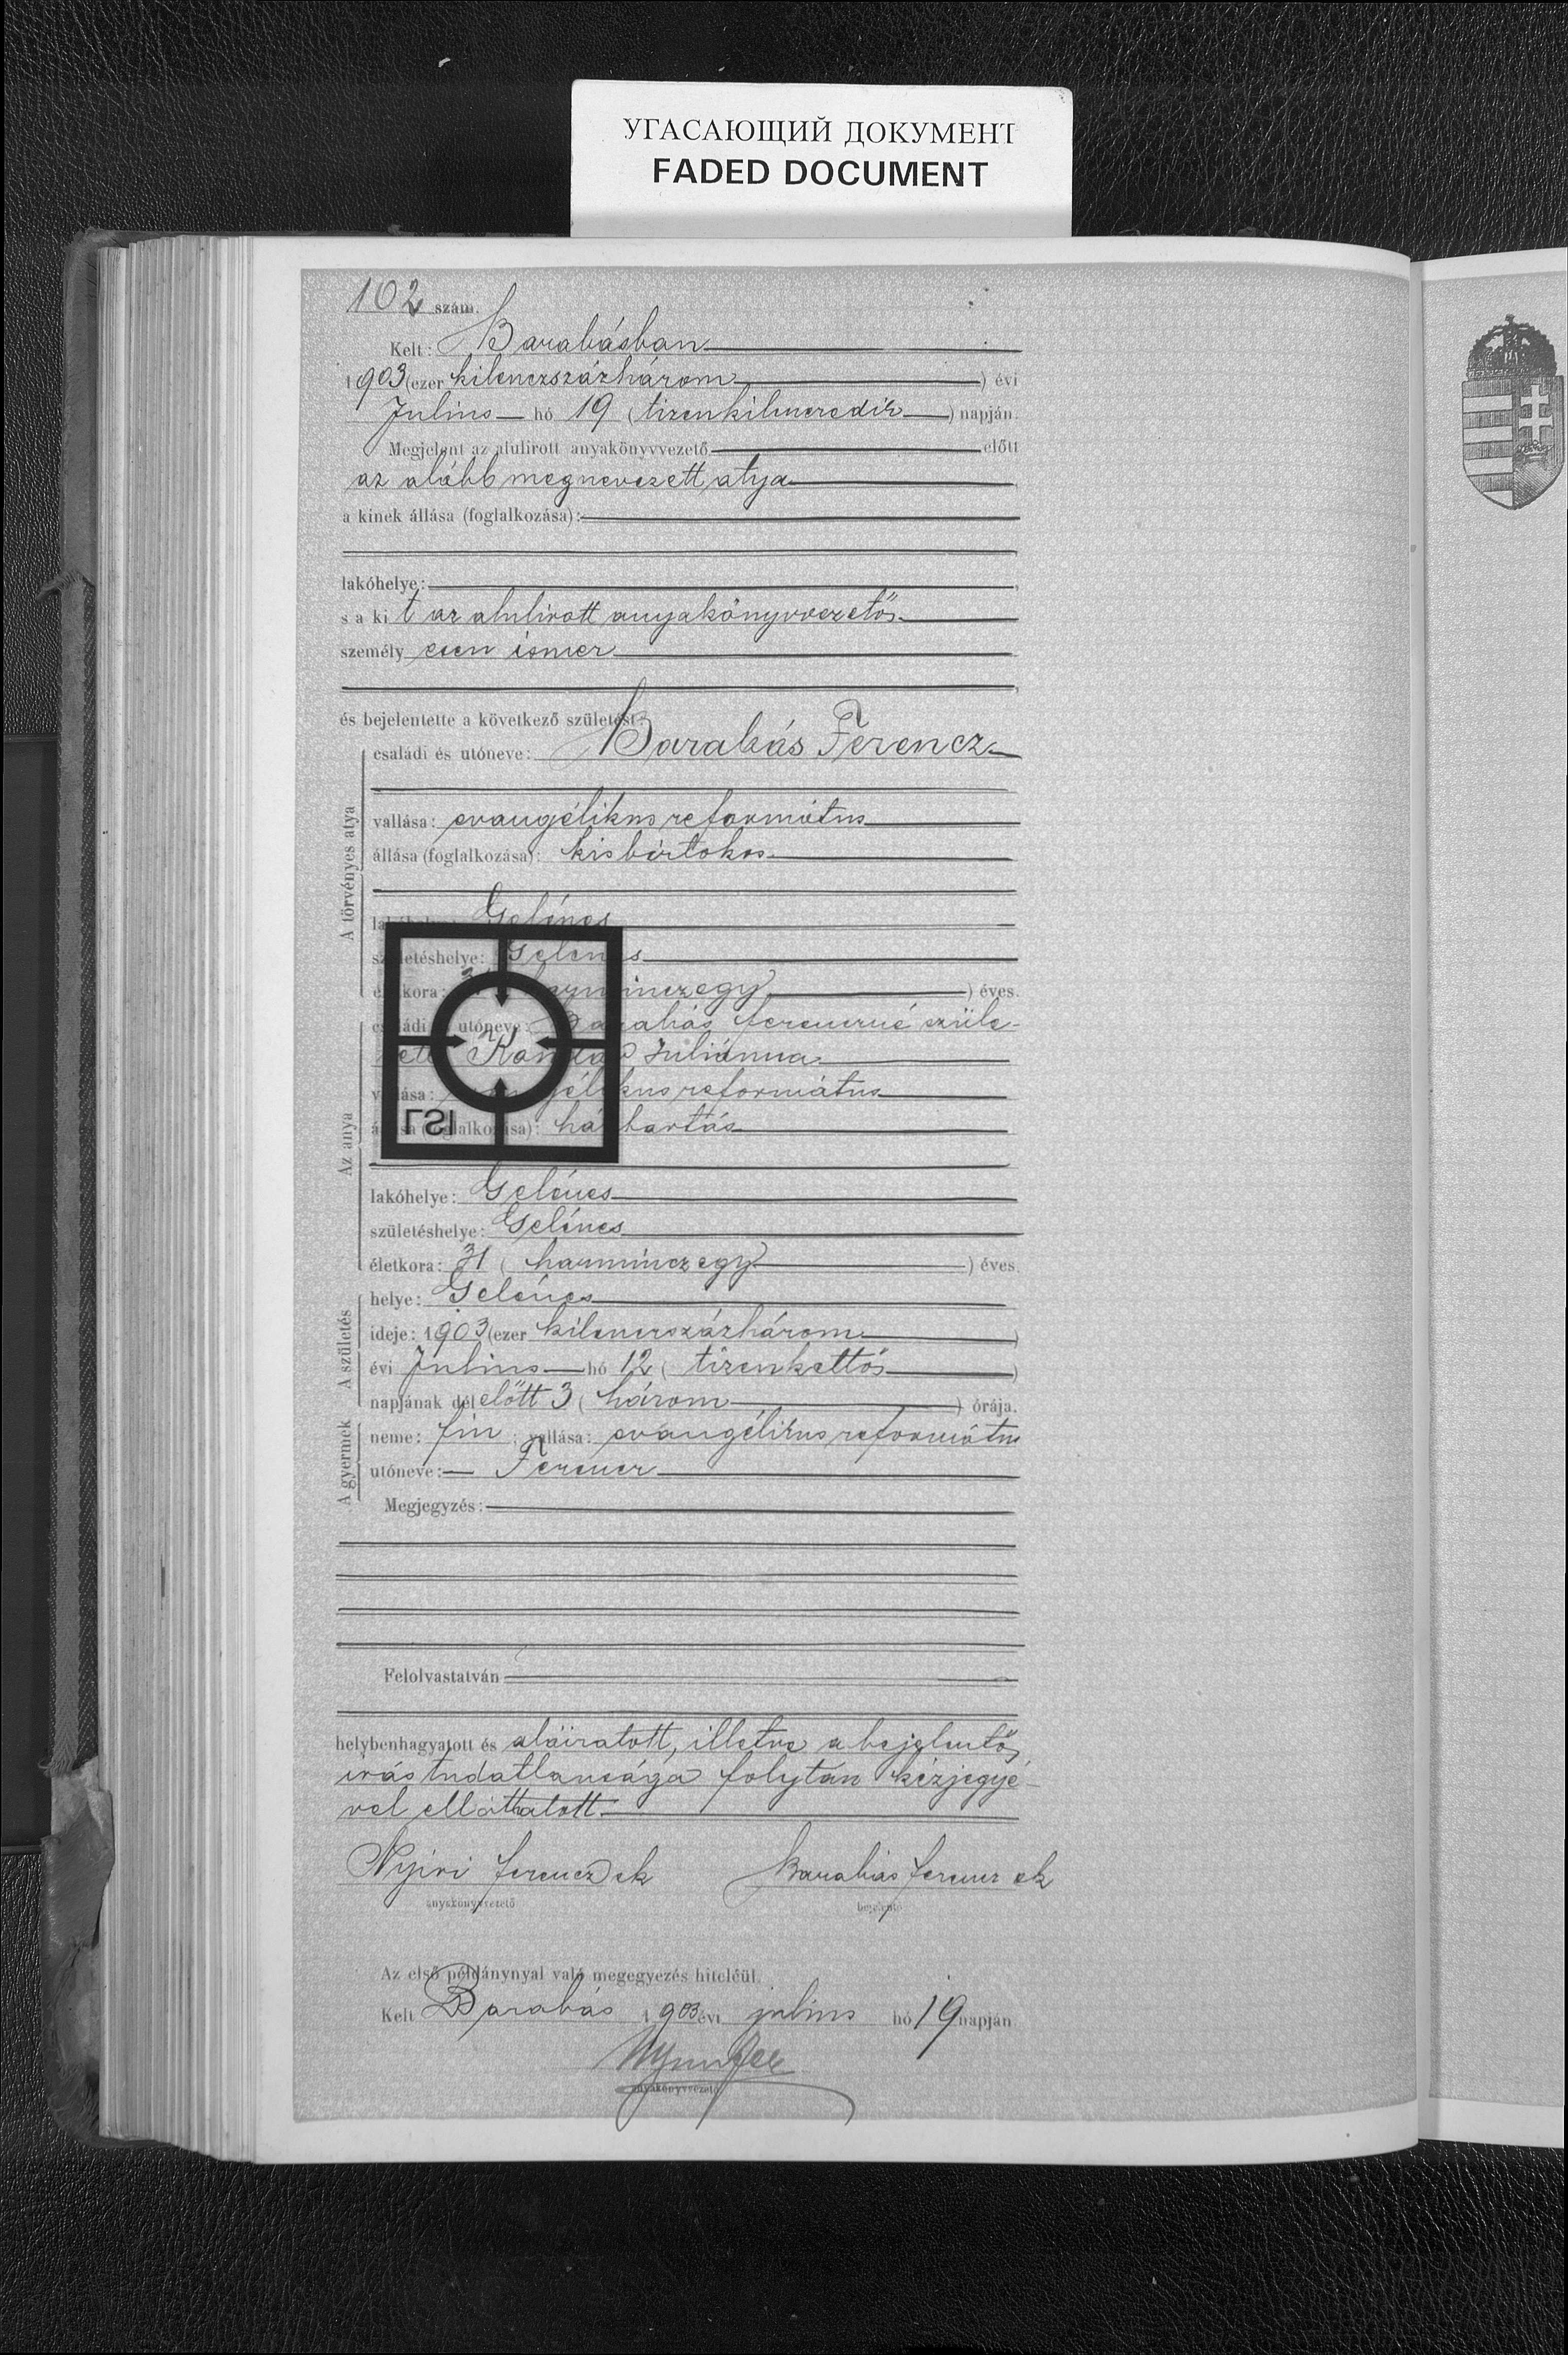 УГАСАЮЩИЙ ДОКУМЕНТ
FADED DOCUMENT
102 szám.
Kelt: Barabásban
1903 (ezer kilenczszázhárom) évi
Julius hó 19 (tizenkilenczedik) napján.
Megjelent az alulirott anyakönyvvezető előtt
az alább megnevezett atya
a kinek állása (foglalkozása):
lakóhelye:
s a kit az alulirott anyakönyvvezető
személyesen ismer
és bejelentette a következő születést:
A törvényes atya
családi és utóneve: Barabás Ferencz
vallása: evangélikus református
állása (foglalkozása): kisbirtokos
Gelénes
születéshelye: Gelénes
harminczegy) éves.
Az anya
utóneve: Barabás Ferenczné szüle-
Juliánna
vallása: evangélikus református
állása (foglalkozása): háztartás
lakóhelye: Gelénes
születéshelye: Gelénes
életkora: 31 (harminczegy) éves.
A születés
helye: Gelénes
ideje: 1903 (ezer kilenczszázhárom)
évi Julius hó 12 (tizenkettő)
napjának délelőtt 3 (három) órája.
A gyermek
neme: fiu; vallása: evangélikus református
utóneve: Ferencz
Megjegyzés:
Felolvastatván
helybenhagyatott és aláiratott, illetve a bejelentő
irástudatlansága folytán kézjegyé-
vel elláttatott.
Nyiri Ferencz sk Barabás Ferencz sk
anyakönyvvezető bejelentő
Az első példánynyal való megegyezés hiteléül.
Kelt Barabás 1903 évi julius hó 19 napján
anyakönyvvezető
LSI